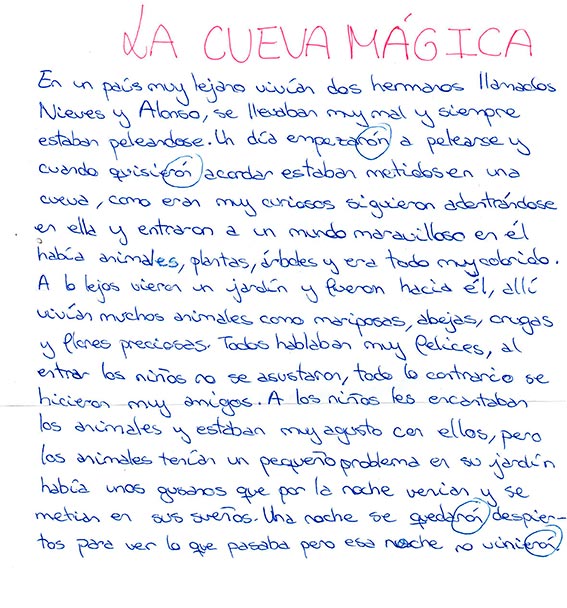 LA CUEVA MÁGICA
En un país muy lejano vivían dos hermanos llamados
Nieves y Alonso, se llevaban muy mal y siempre
estaban peleandose. Un día empezarón a pelearse y
cuando quisierón acordar estaban metidos en una
cueva, como eran muy curiosos siguieron adentrándose
en ella y entraron a un mundo maravilloso en él
había animales, plantas, árboles y era todo muy colorido.
A lo lejos vieron un jardín y fueron hacia él, allí
vivían muchos animales como mariposas, abejas, orugas
y flores preciosas. Todos hablaban muy felices, al
entrar los niños no se asustaron, todo lo contrario se
hicieron muy amigos. A los niños les encantaban
los animales y estaban muy agusto con ellos, pero
los animales tenían un pequeño problema en su jardín
había unos gusanos que por la noche venían y se
metían en sus sueños. Una noche se quedarón despier-
tos para ver lo que pasaba pero esa noche no vinierón.